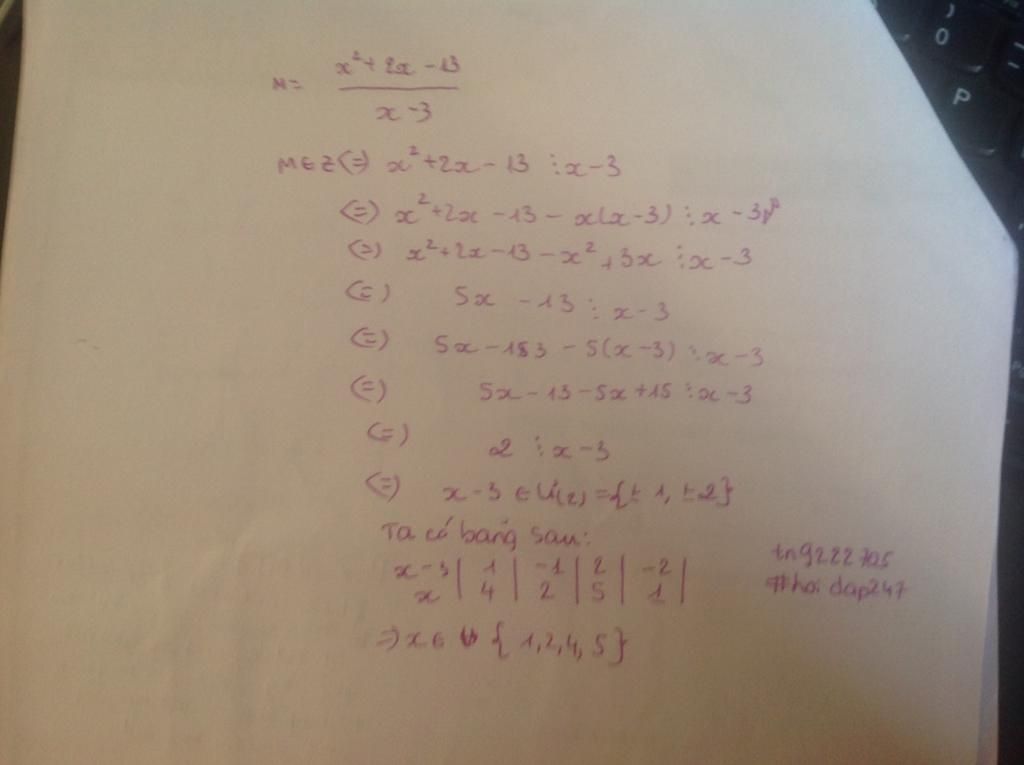 M = x²+2x-13 / x-3
M∈Z (=) x²+2x-13 ⋮ x-3
(=) x²+2x-13-x(x-3) ⋮ x-3
(=) x²+2x-13-x²+3x ⋮ x-3
(=) 5x-13 ⋮ x-3
(=) 5x-13-5(x-3) ⋮ x-3
(=) 5x-13-5x+15 ⋮ x-3
(=) 2 ⋮ x-3
(=) x-3 ∈ Ư(2) = {±1, ±2}
Ta có bảng sau:
x-3 | 1 | -1 | 2 | -2 |
x | 4 | 2 | 5 | 1 |
=) x ∈ { 1,2,4,5}
tn9222705
#hoidap247
O
P